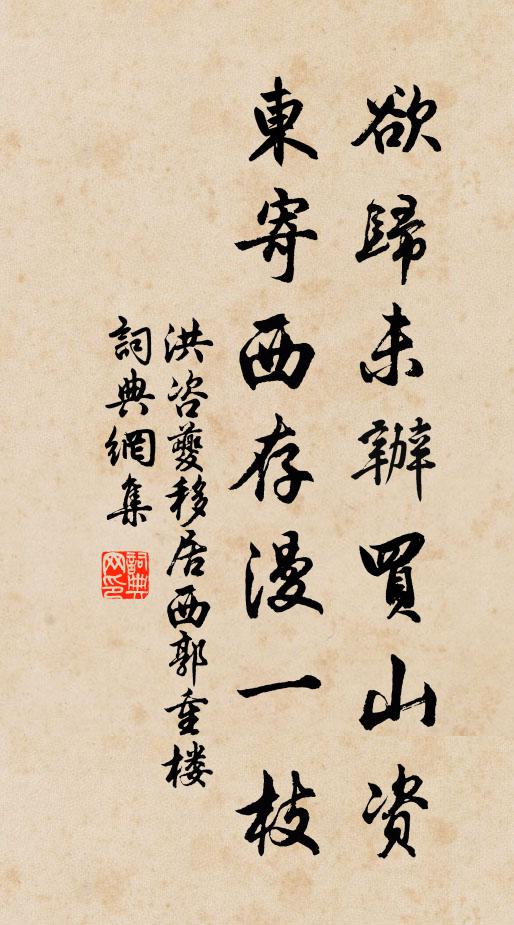 欲歸未辦買山资
東寄西存漫一枝
洪咨夔移居西郭重楼
詞典網集
詞典
网印